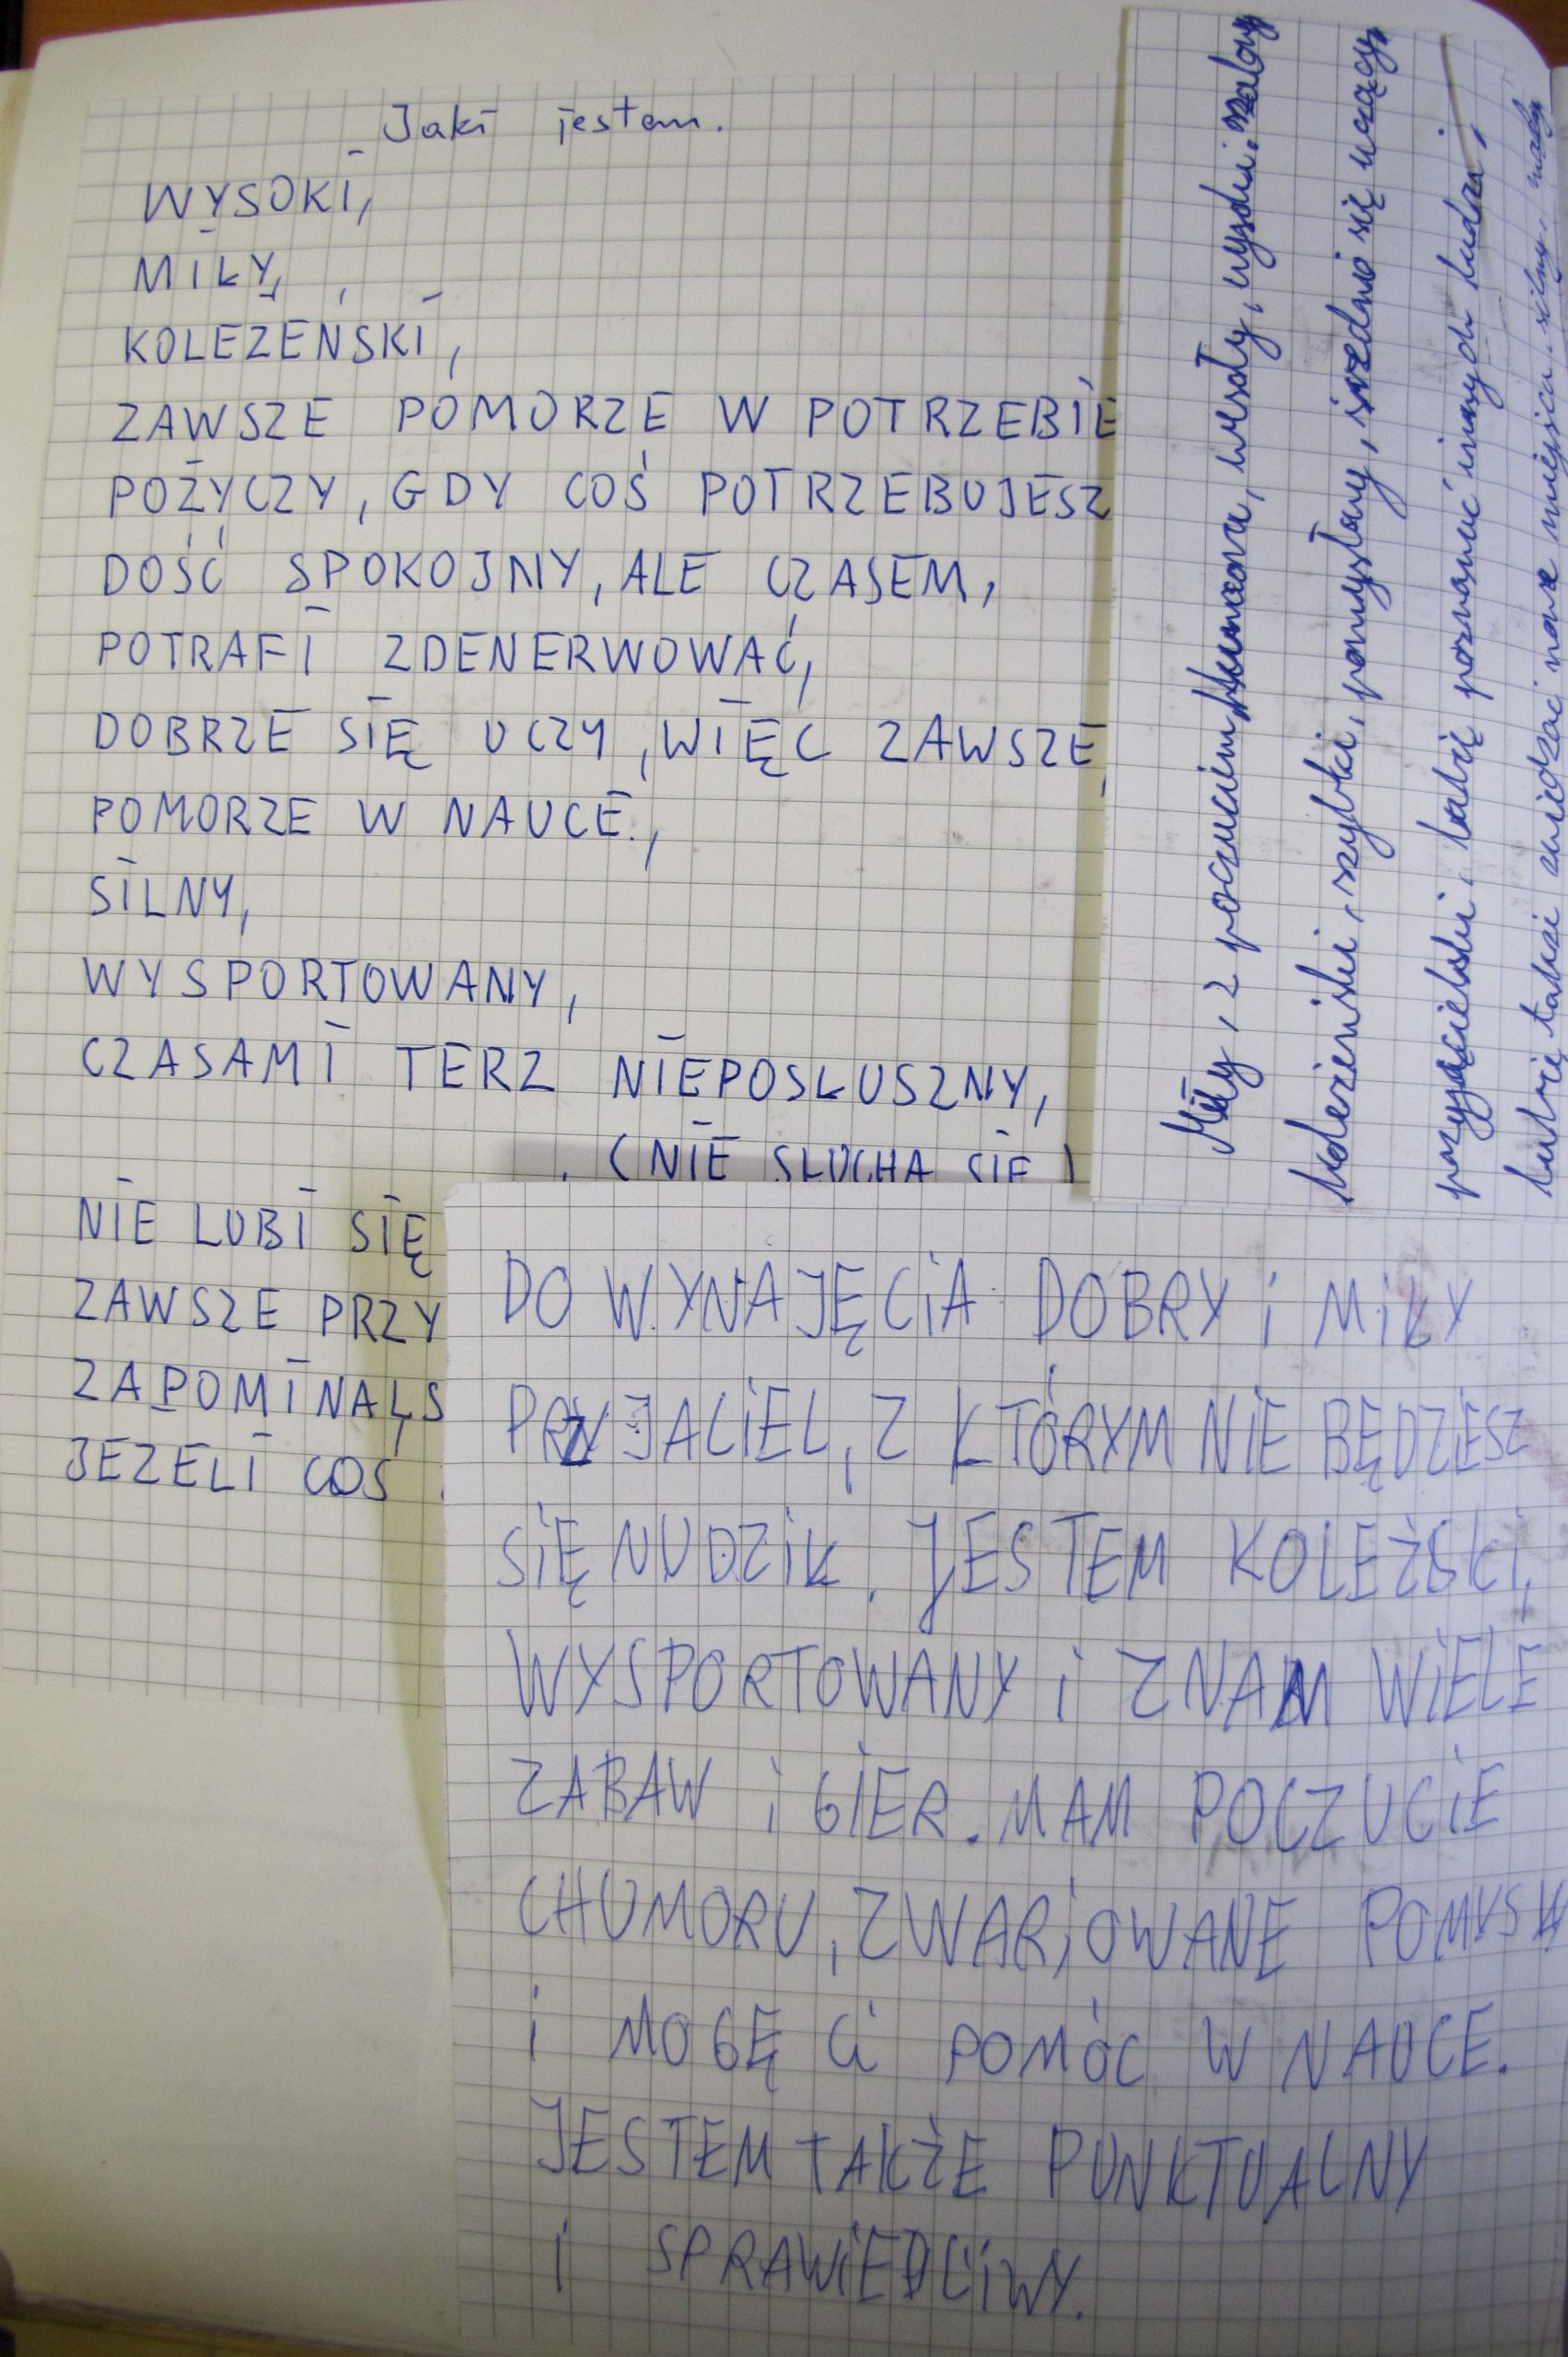 Jaki jestem.
WYSOKI,
MIŁY,
KOLEŻEŃSKI,
ZAWSZE POMORZE W POTRZEBIE
POŻYCZY, GDY COŚ POTRZEBUJESZ
DOŚĆ SPOKOJNY, ALE CZASEM,
POTRAFI ZDENERWOWAĆ,
DOBRZE SIĘ UCZY, WIĘC ZAWSZE
POMORZE W NAUCE.,
SILNY,
WYSPORTOWANY,
CZASAMI TERZ NIEPOSŁUSZNY,
(NIE SŁUCHA SIĘ)
NIE LUBI SIĘ
ZAWSZE PRZY
ZAPOMINALS
JEZELI COS
Miły, z poczuciem humoru, wesoły, wysoki,
koleżeński, szybki, pomysłowy, średnio się uczący
przyjacielski, lubię poznawać innych ludzi,
lubię także zwiedzać nowe miejsca, silny, mały
DO WYNAJĘCIA DOBRY i MiŁY
PRZYJACIEL, Z KTÓRYM NIE BĘDZIESZ
SIĘ NUDZIŁ. JESTEM KOLEŻSKI,
WYSPORTOWANY i ZNAM WIELE
ZABAW i GIER. MAM POCZUCIE
CHUMORU, ZWARJOWANE POMYSŁY
i MOGĘ Ci POMÓC W NAUCE.
JESTEM TAKŻE PUNKTUALNY
i SPRAWIEDLIWY.